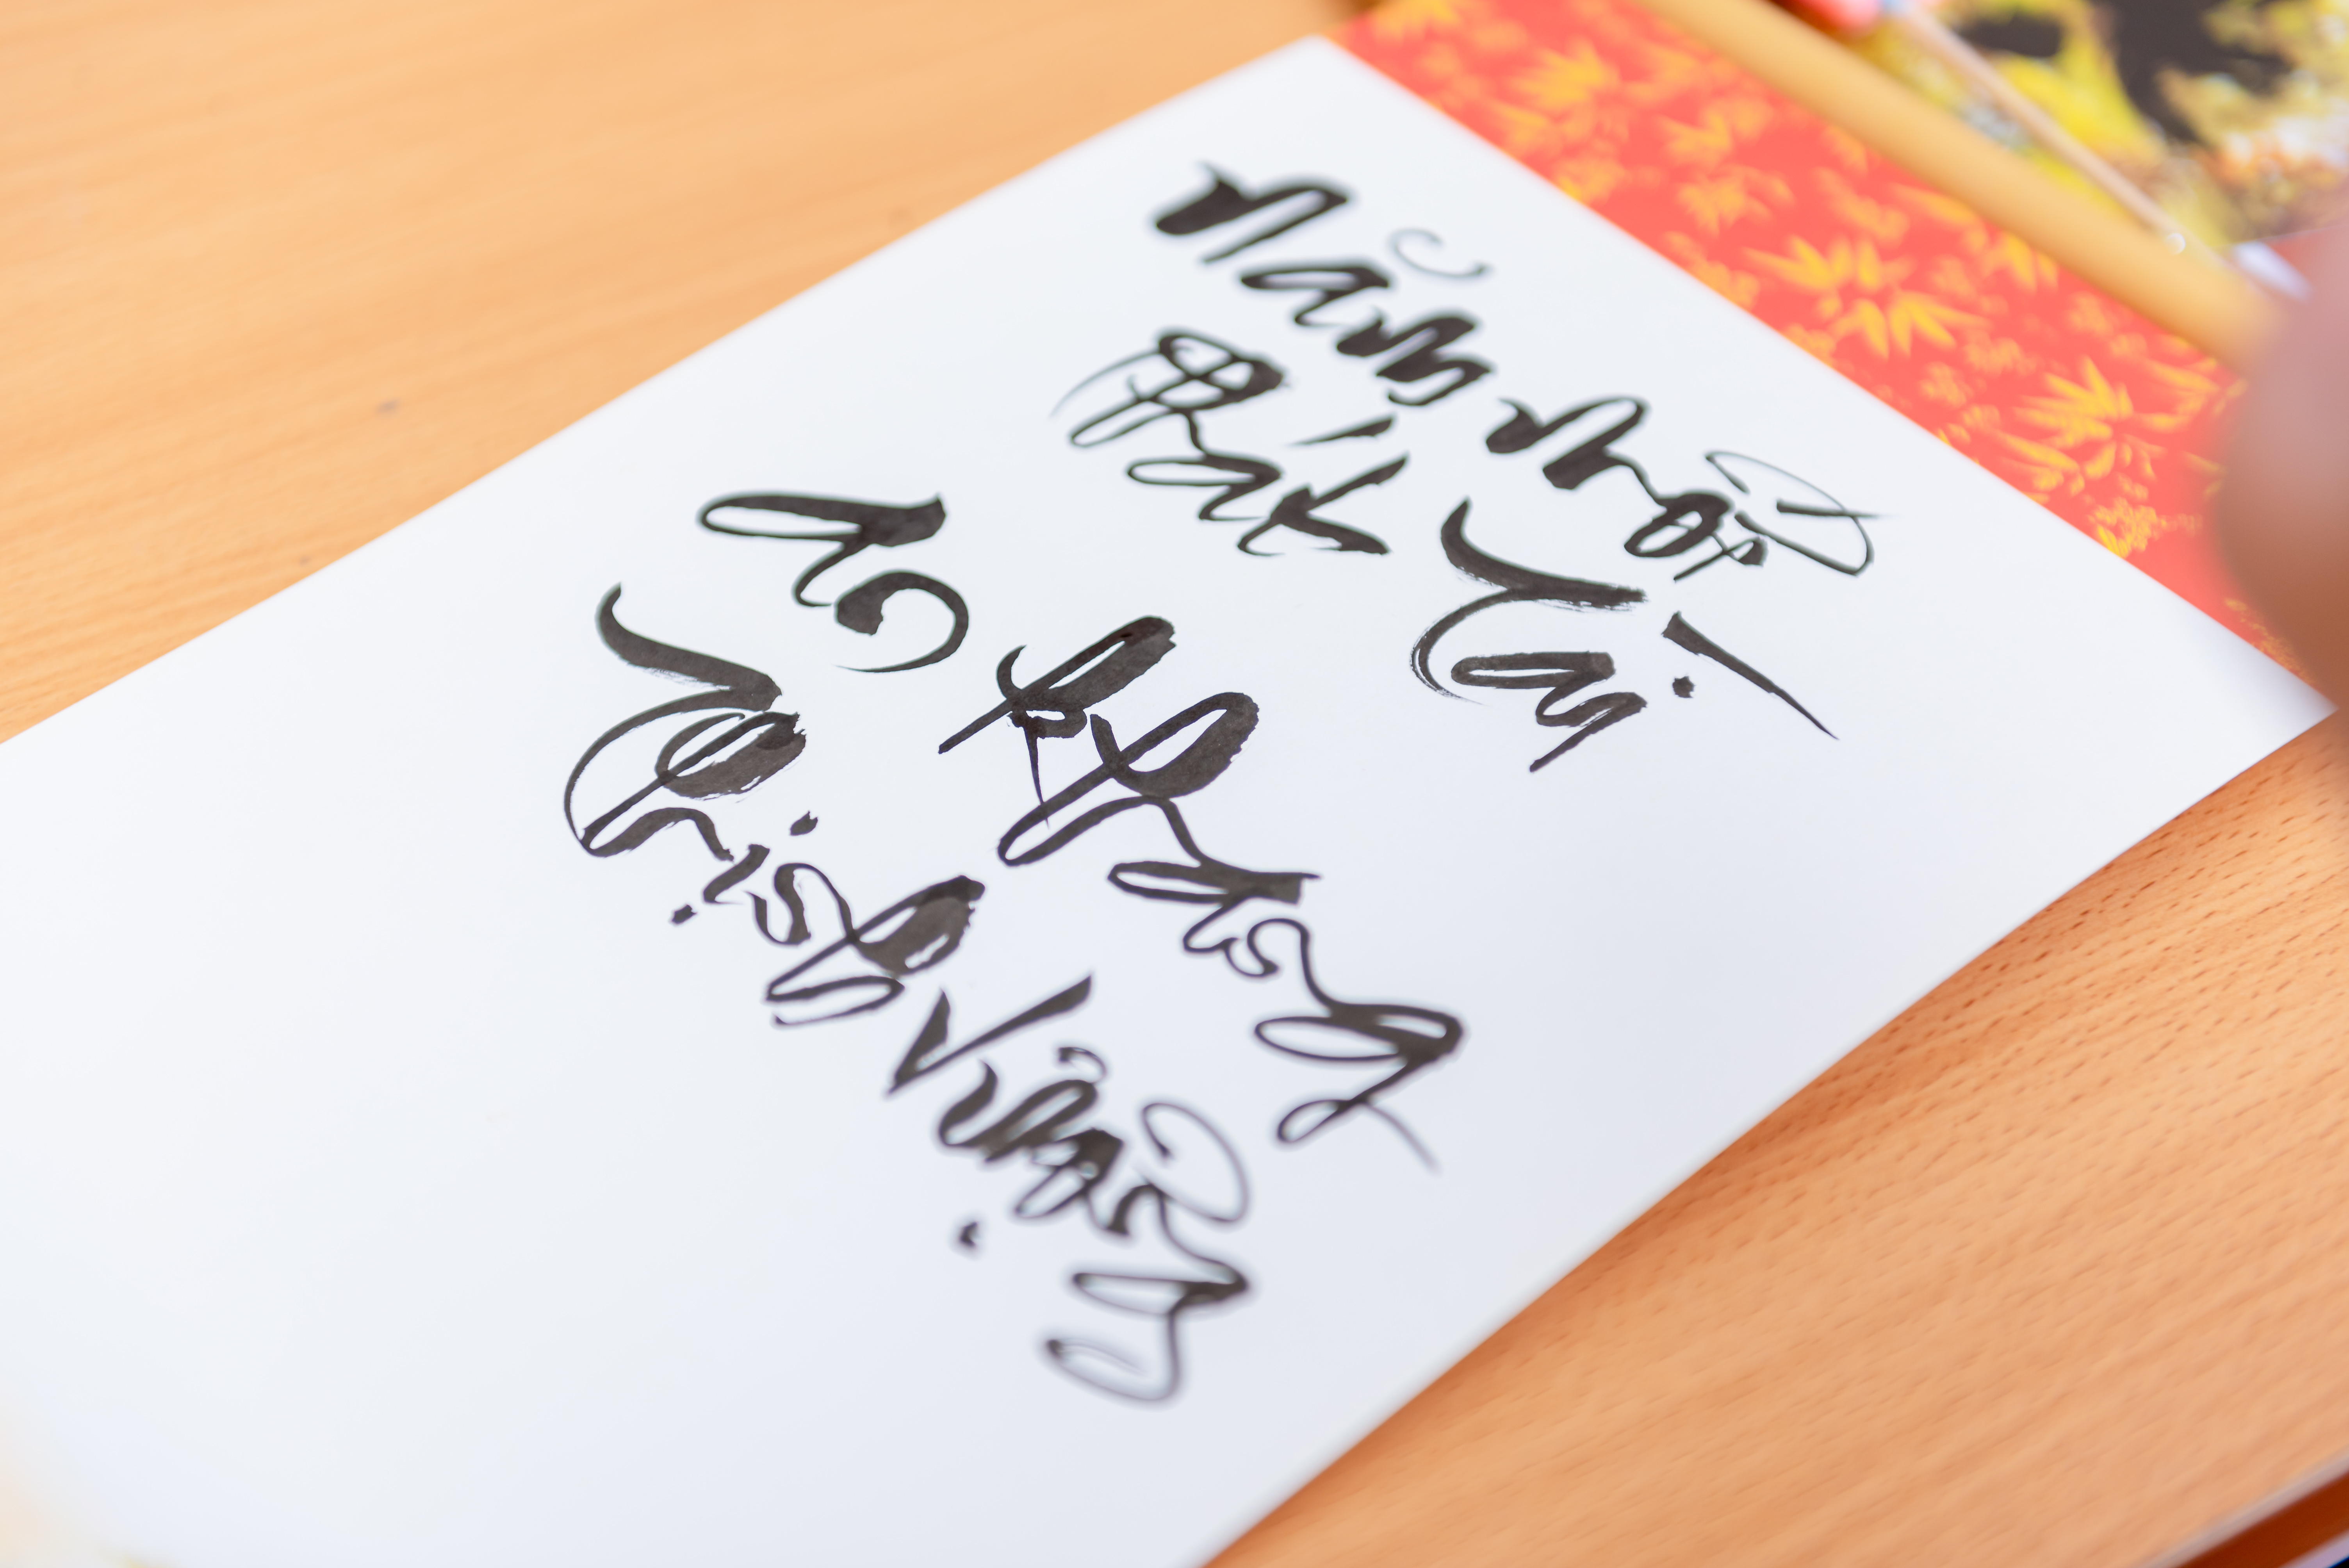 Năm mới
Phát Tài
An Khang
Thịnh Vượng